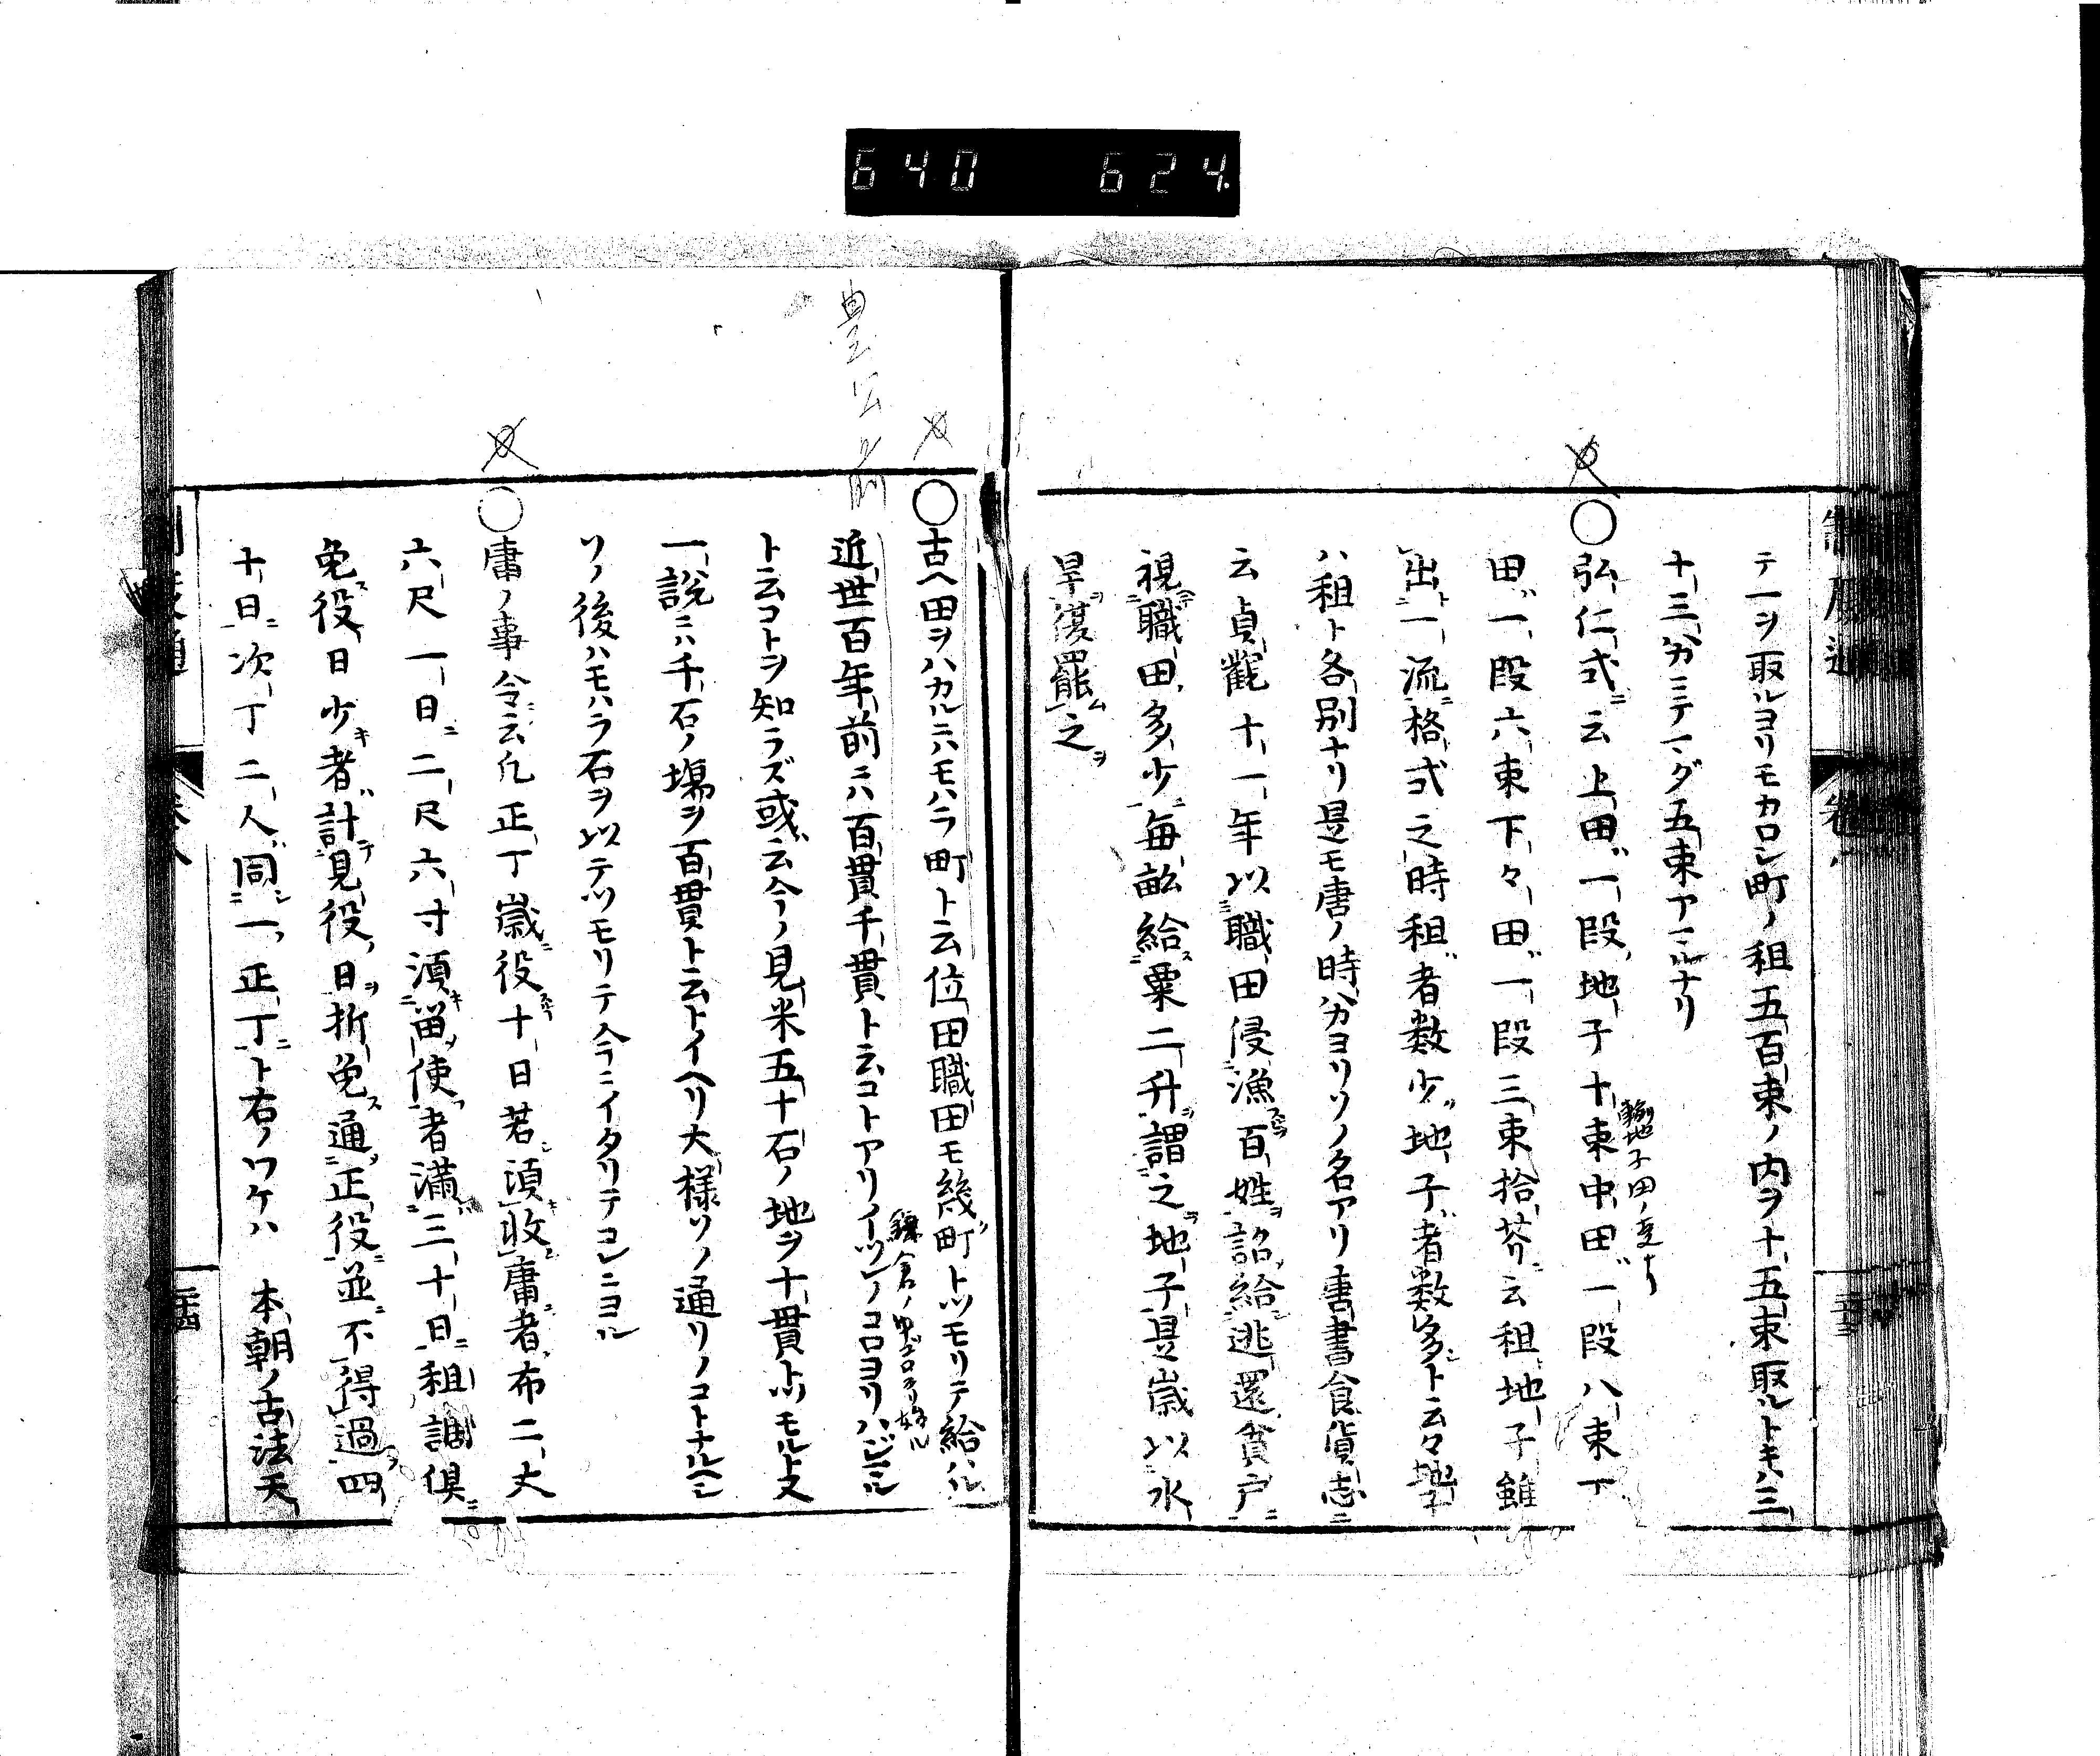 640 624.
テ一ヲ取ルヨリモカロシ町ノ租五百束ノ内ヲ十五束取ルトキハ三
十三分ニテマダ五束アマルナリ
○弘仁式云上田一段地子十束中田一段八束下
田一段六束下々田一段三束拾芥云租地子雖
出一流格式之時租者数少地子者数多ト云々
ハ租ト各別ナリ是モ唐ノ時ハカヨリソノ名アリ唐書食貨志ニ
云貞観十一年以職田侵漁百姓詔給逃還貧戸
視職田多少毎畝給粟二升謂之地子是歳以水
旱復罷之
○古ヘ田ヲハカルニハモハラ町ト云位田職田モ幾町トツモリテ給ハル
近世百年前ニハ百貫千貫ト云コトアリイツノコロヨリハジマル
ト云コトヲ知ラズ或云今ノ見米五十石ノ地ヲ十貫トツモルト又
一説ニハ千石ノ場ヲ百貫ト云トイヘリ大様ソノ通リノコトナルヘシ
ソノ後ハモハラ石ヲ以テツモリテ今ニイタリテコレニヨル
○庸ノ事令云凡正丁歳役十日若須收庸者布二丈
六尺一日二尺六寸須留使者満三十日租調倶
免役日少者計見役日折免通正役並不得過四
十日次丁二人同一正丁ト右ノワケハ 本朝ノ古法天